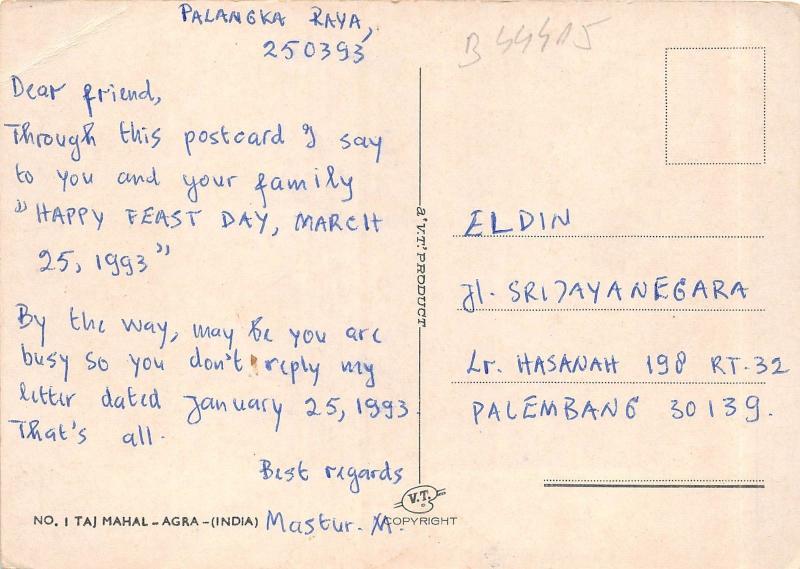 PALANGKA RAYA,
250393
B 44415
Dear friend,
Through this postcard I say
to you and your family
"HAPPY FEAST DAY, MARCH
25, 1993"
By the way, may be you are
busy so you don't reply my
letter dated January 25, 1993.
That's all.
Best regards
Mastur. M.
NO. 1 TAJ MAHAL – AGRA – (INDIA)
a 'V.T.' PRODUCT
V.T.
COPYRIGHT
ELDIN
Jl. SRIJAYANEGARA
Lr. HASANAH 198 RT. 32
PALEMBANG 30139.